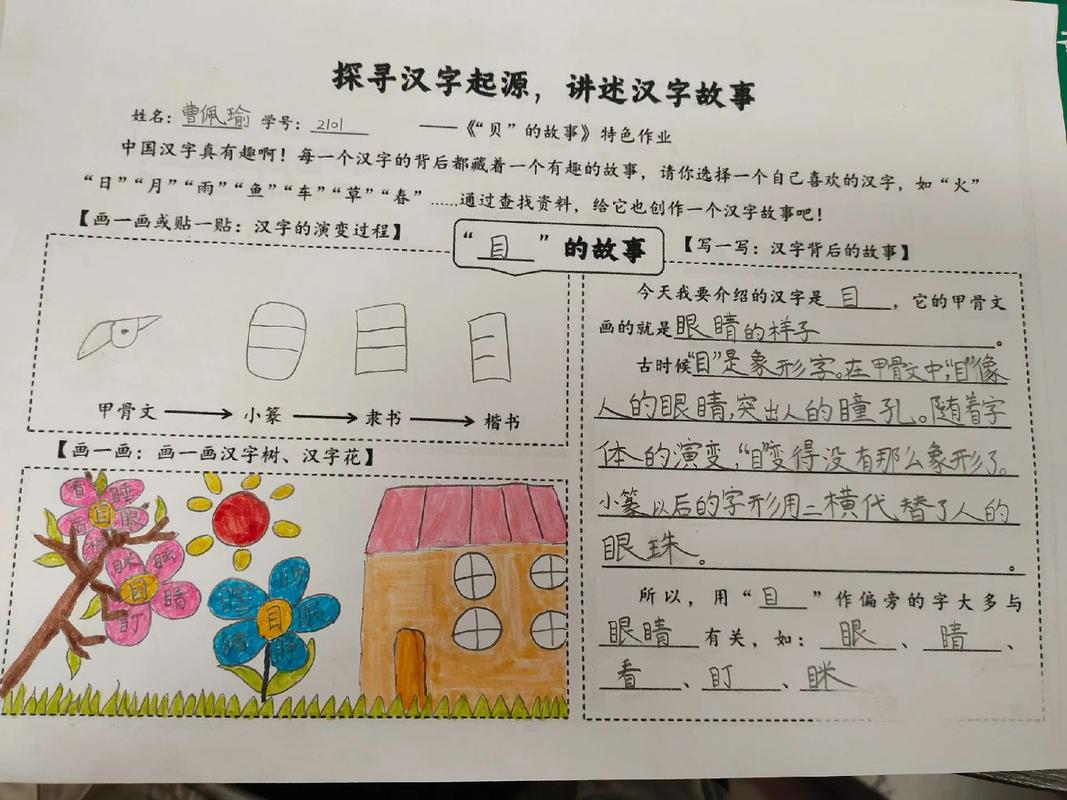 探寻汉字起源，讲述汉字故事
姓名：曹佩瑜 学号：2101 ——《“贝”的故事》特色作业
中国汉字真有趣啊！每一个汉字的背后都藏着一个有趣的故事，请你选择一个自己喜欢的汉字，如“火”
“日”“月”“雨”“鱼”“车”“草”“春”……通过查找资料，给它也创作一个汉字故事吧！
【画一画或贴一贴：汉字的演变过程】
“目”的故事
【写一写：汉字背后的故事】
甲骨文 小篆 隶书 楷书
【画一画：画一画汉字树、汉字花】
看 睡
目 眼
眯
目 睛
盯
目 眼
今天我要介绍的汉字是目，它的甲骨文
画的就是眼睛的样子。
古时候“目”是象形字。在甲骨文中，“目”像
人的眼睛，突出人的瞳孔。随着字
体的演变，“目”变得没有那么象形了。
小篆以后的字形用二横代替了人的
眼珠。。
所以，用“目”作偏旁的字大多与
眼睛有关，如：眼、睛、
看、盯、眯